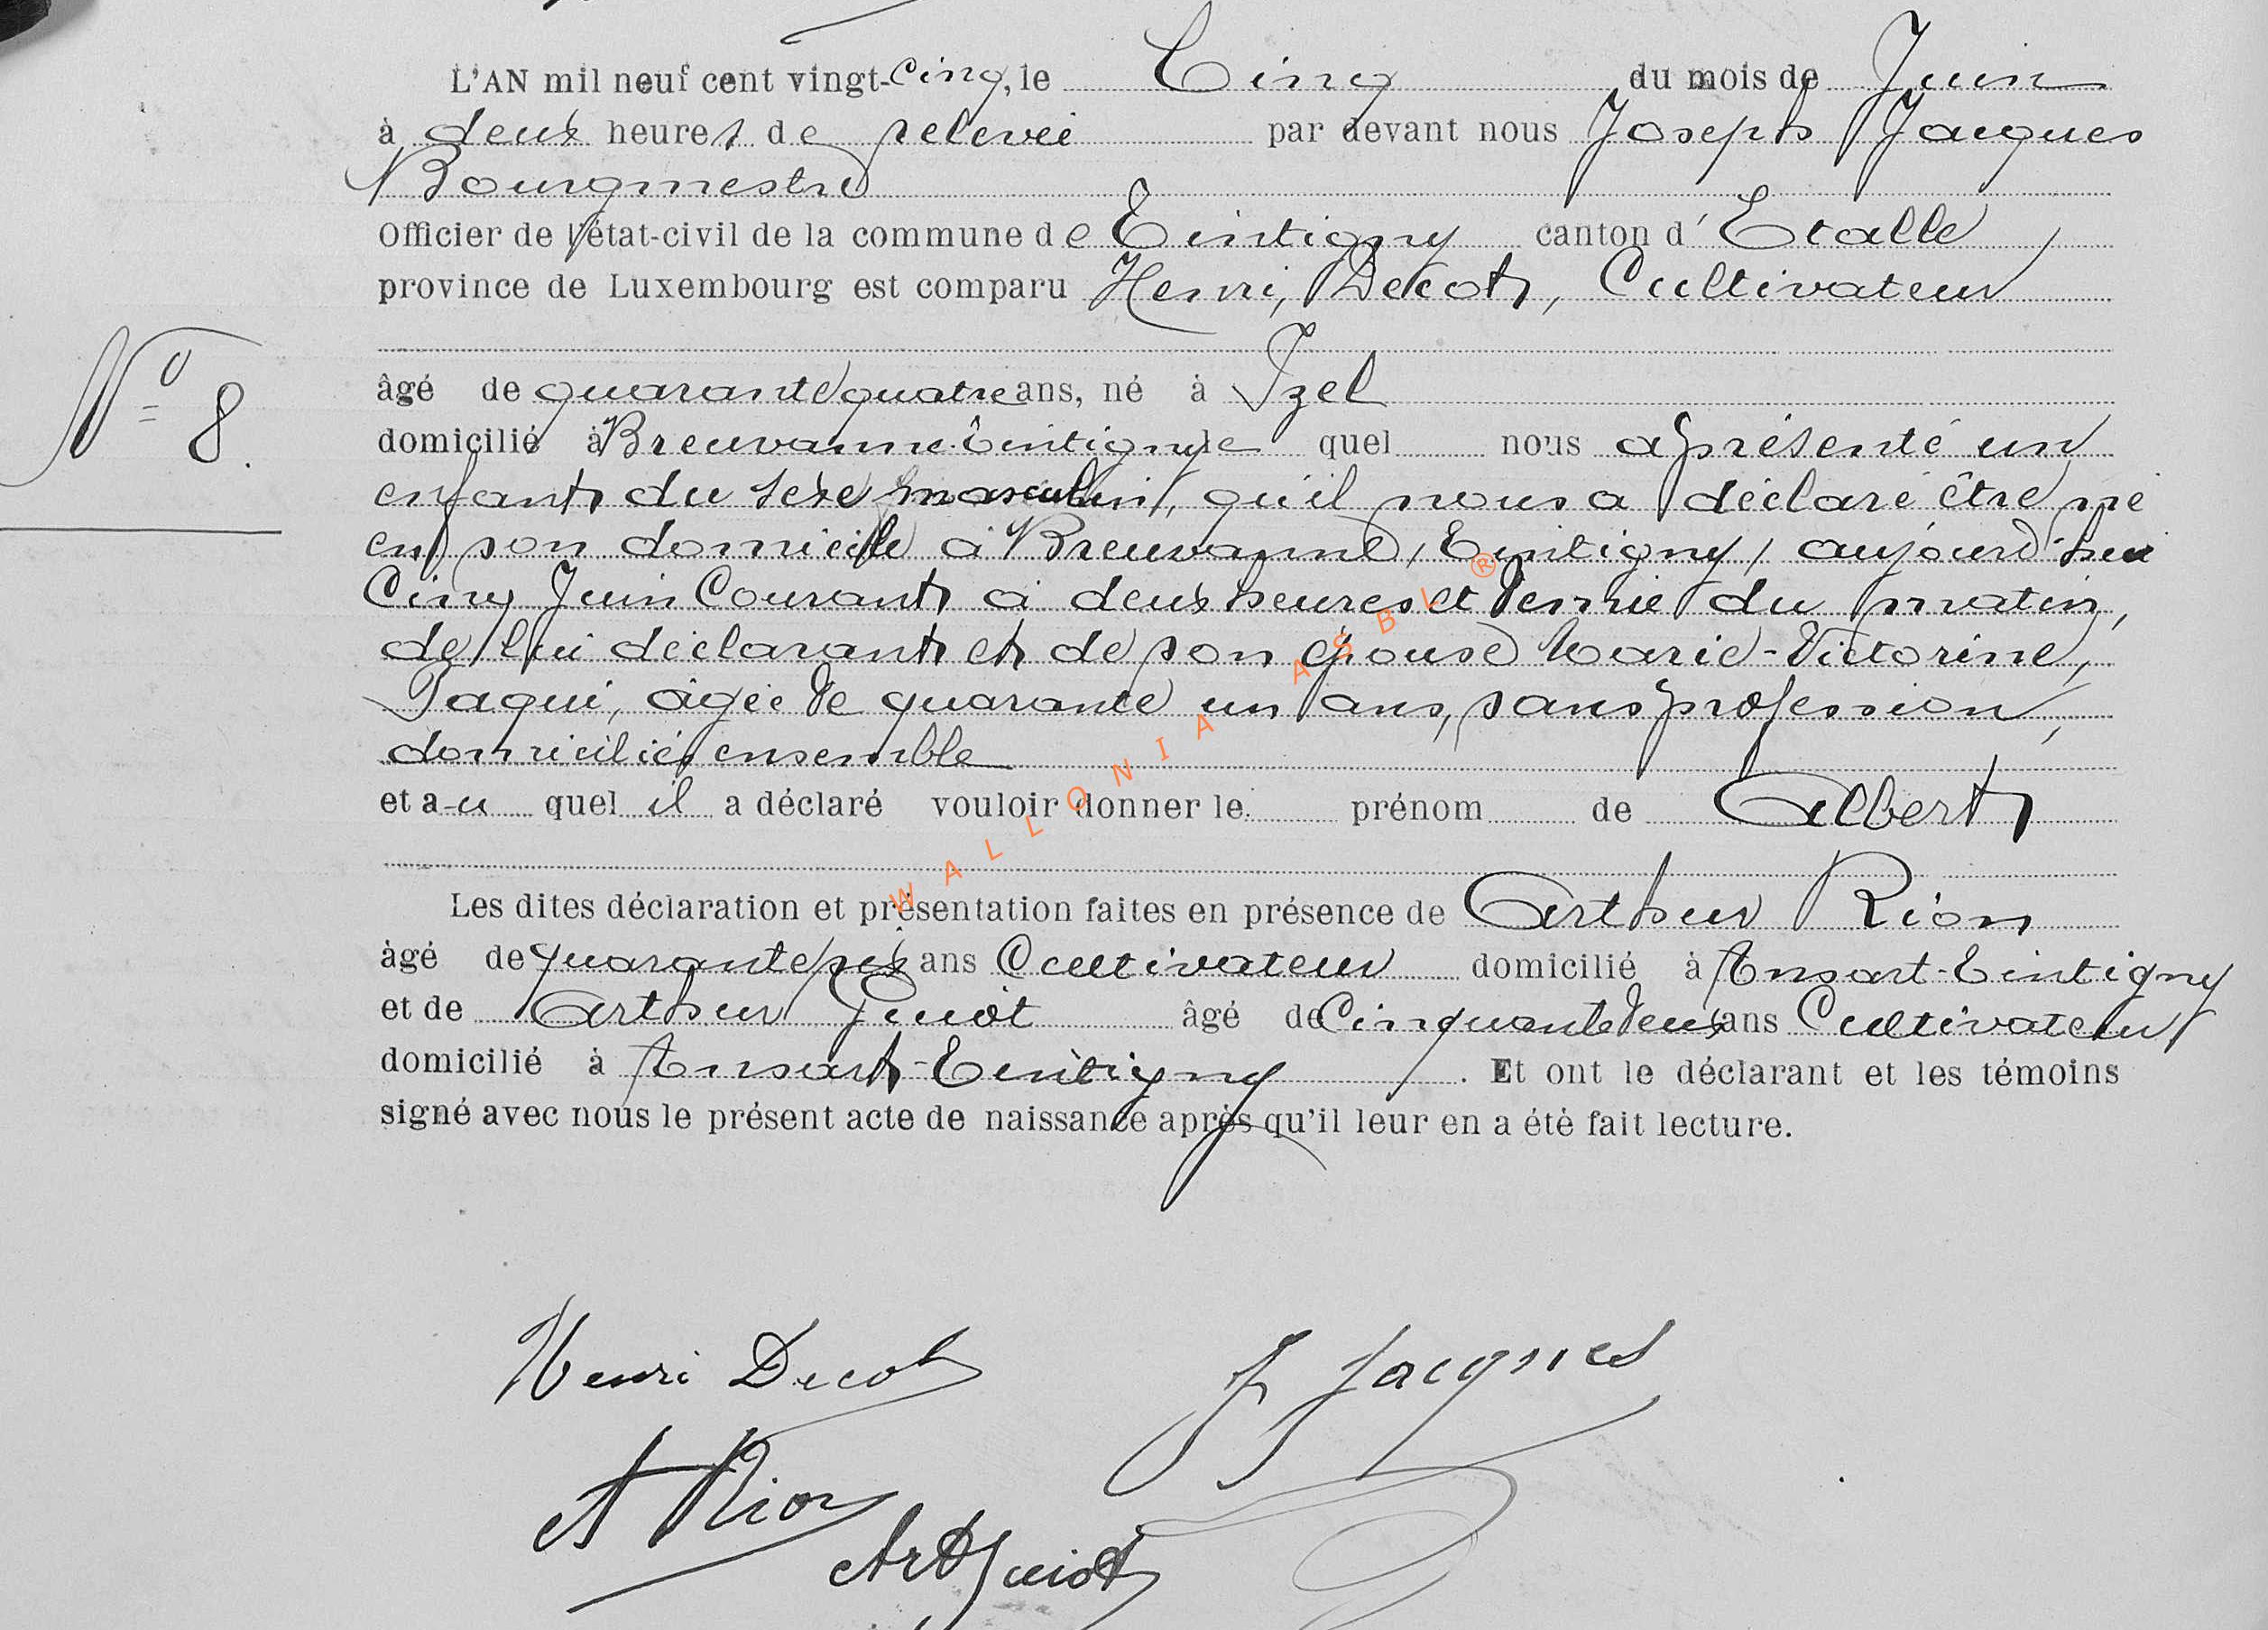 L'AN mil neuf cent vingt-cinq, le Cinq du mois de Juin
à deux heures de relevée par devant nous Joseph Jacques
Bourgmestre
Officier de l'état-civil de la commune de Tintigny canton d'Etalle
province de Luxembourg est comparu Henri, Decot, Cultivateur
âgé de quarante quatre ans, né à Izel
N° 8.
domicilié à Breuvanne-Tintigny le quel nous a présenté un
enfant du sexe masculin, qu'il nous a déclaré être né
en son domicile à Breuvanne, Tintigny, aujourd'hui
Cinq Juin Courant à deux heures et demie du matin,
de lui déclarant et de son épouse Marie-Victorine,
Paqui, âgée de quarante un ans, sans profession,
domiciliés ensemble
et au quel il a déclaré vouloir donner le prénom de Albert
Les dites déclaration et présentation faites en présence de Arthur Rion
âgé de quarante six ans Cultivateur domicilié à Ansart-Tintigny
et de Arthur Guiot âgé de Cinquante deux ans Cultivateur
domicilié à Ansart-Tintigny. Et ont le déclarant et les témoins
signé avec nous le présent acte de naissance après qu'il leur en a été fait lecture.
WALLONIA ASBL ®
Henri Decot
J Jacques
A Rion
Art Guiot